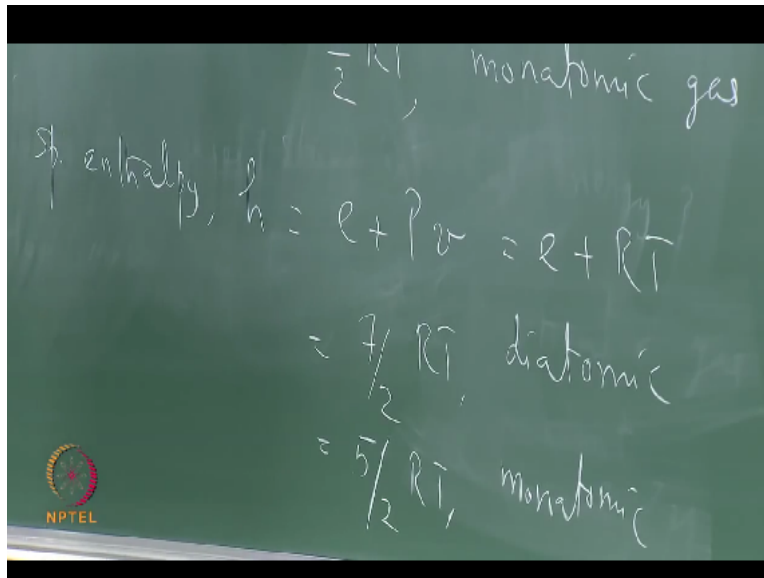 /2 RT, monatomic gas
sp. enthalpy, h = e + Pv = e + RT
= 7/2 RT, diatomic
= 5/2 RT, monatomic
NPTEL